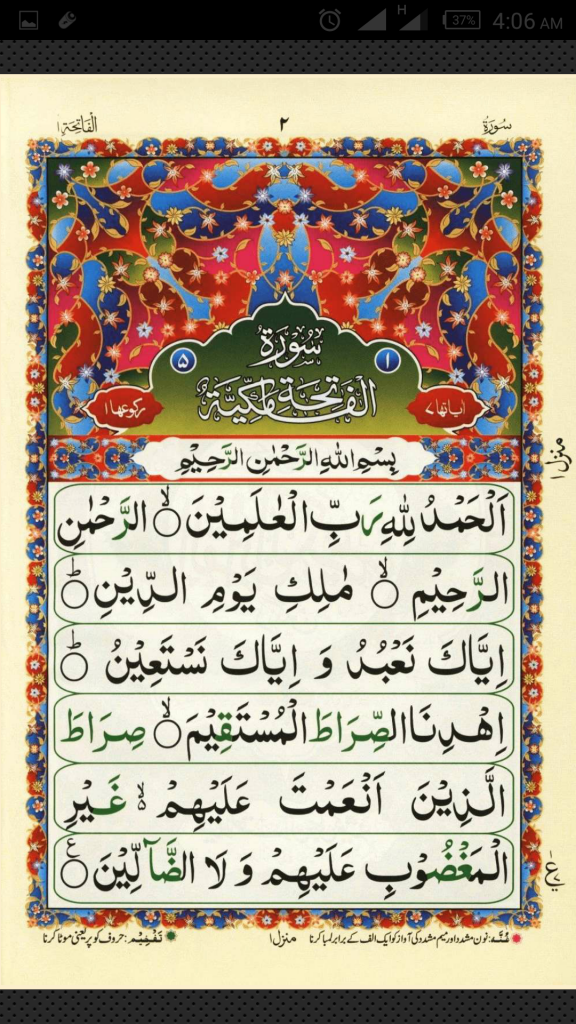 37% 4:06 AM
H
سُورَةُ
٢
الْفَاتِحَةِ ١
سُورَةُ
١
٥
الْفَاتِحَةِ مَكِّيَّةٌ
اٰیاتها ٧
رکوعها ١
بِسْمِ اللّٰهِ الرَّحْمٰنِ الرَّحِيْمِ
منزل ١
اَلْحَمْدُ لِلّٰهِ رَبِّ الْعٰلَمِيْنَ ۙ الرَّحْمٰنِ
الرَّحِيْمِ ۙ مٰلِكِ يَوْمِ الدِّيْنِ ؕ
اِيَّاكَ نَعْبُدُ وَ اِيَّاكَ نَسْتَعِيْنُ ؕ
اِهْدِنَا الصِّرَاطَ الْمُسْتَقِيْمَ ۙ صِرَاطَ
الَّذِيْنَ اَنْعَمْتَ عَلَيْهِمْ ۙ غَيْرِ
الْمَغْضُوْبِ عَلَيْهِمْ وَ لَا الضَّآلِّيْنَ
ع
نون مشدد اور میم مشدد کی آواز کو ایک الف کے برابر لمبا کرنا
منزل ١
تَفْخِیْم: حروف کو پُر یعنی موٹا کرنا